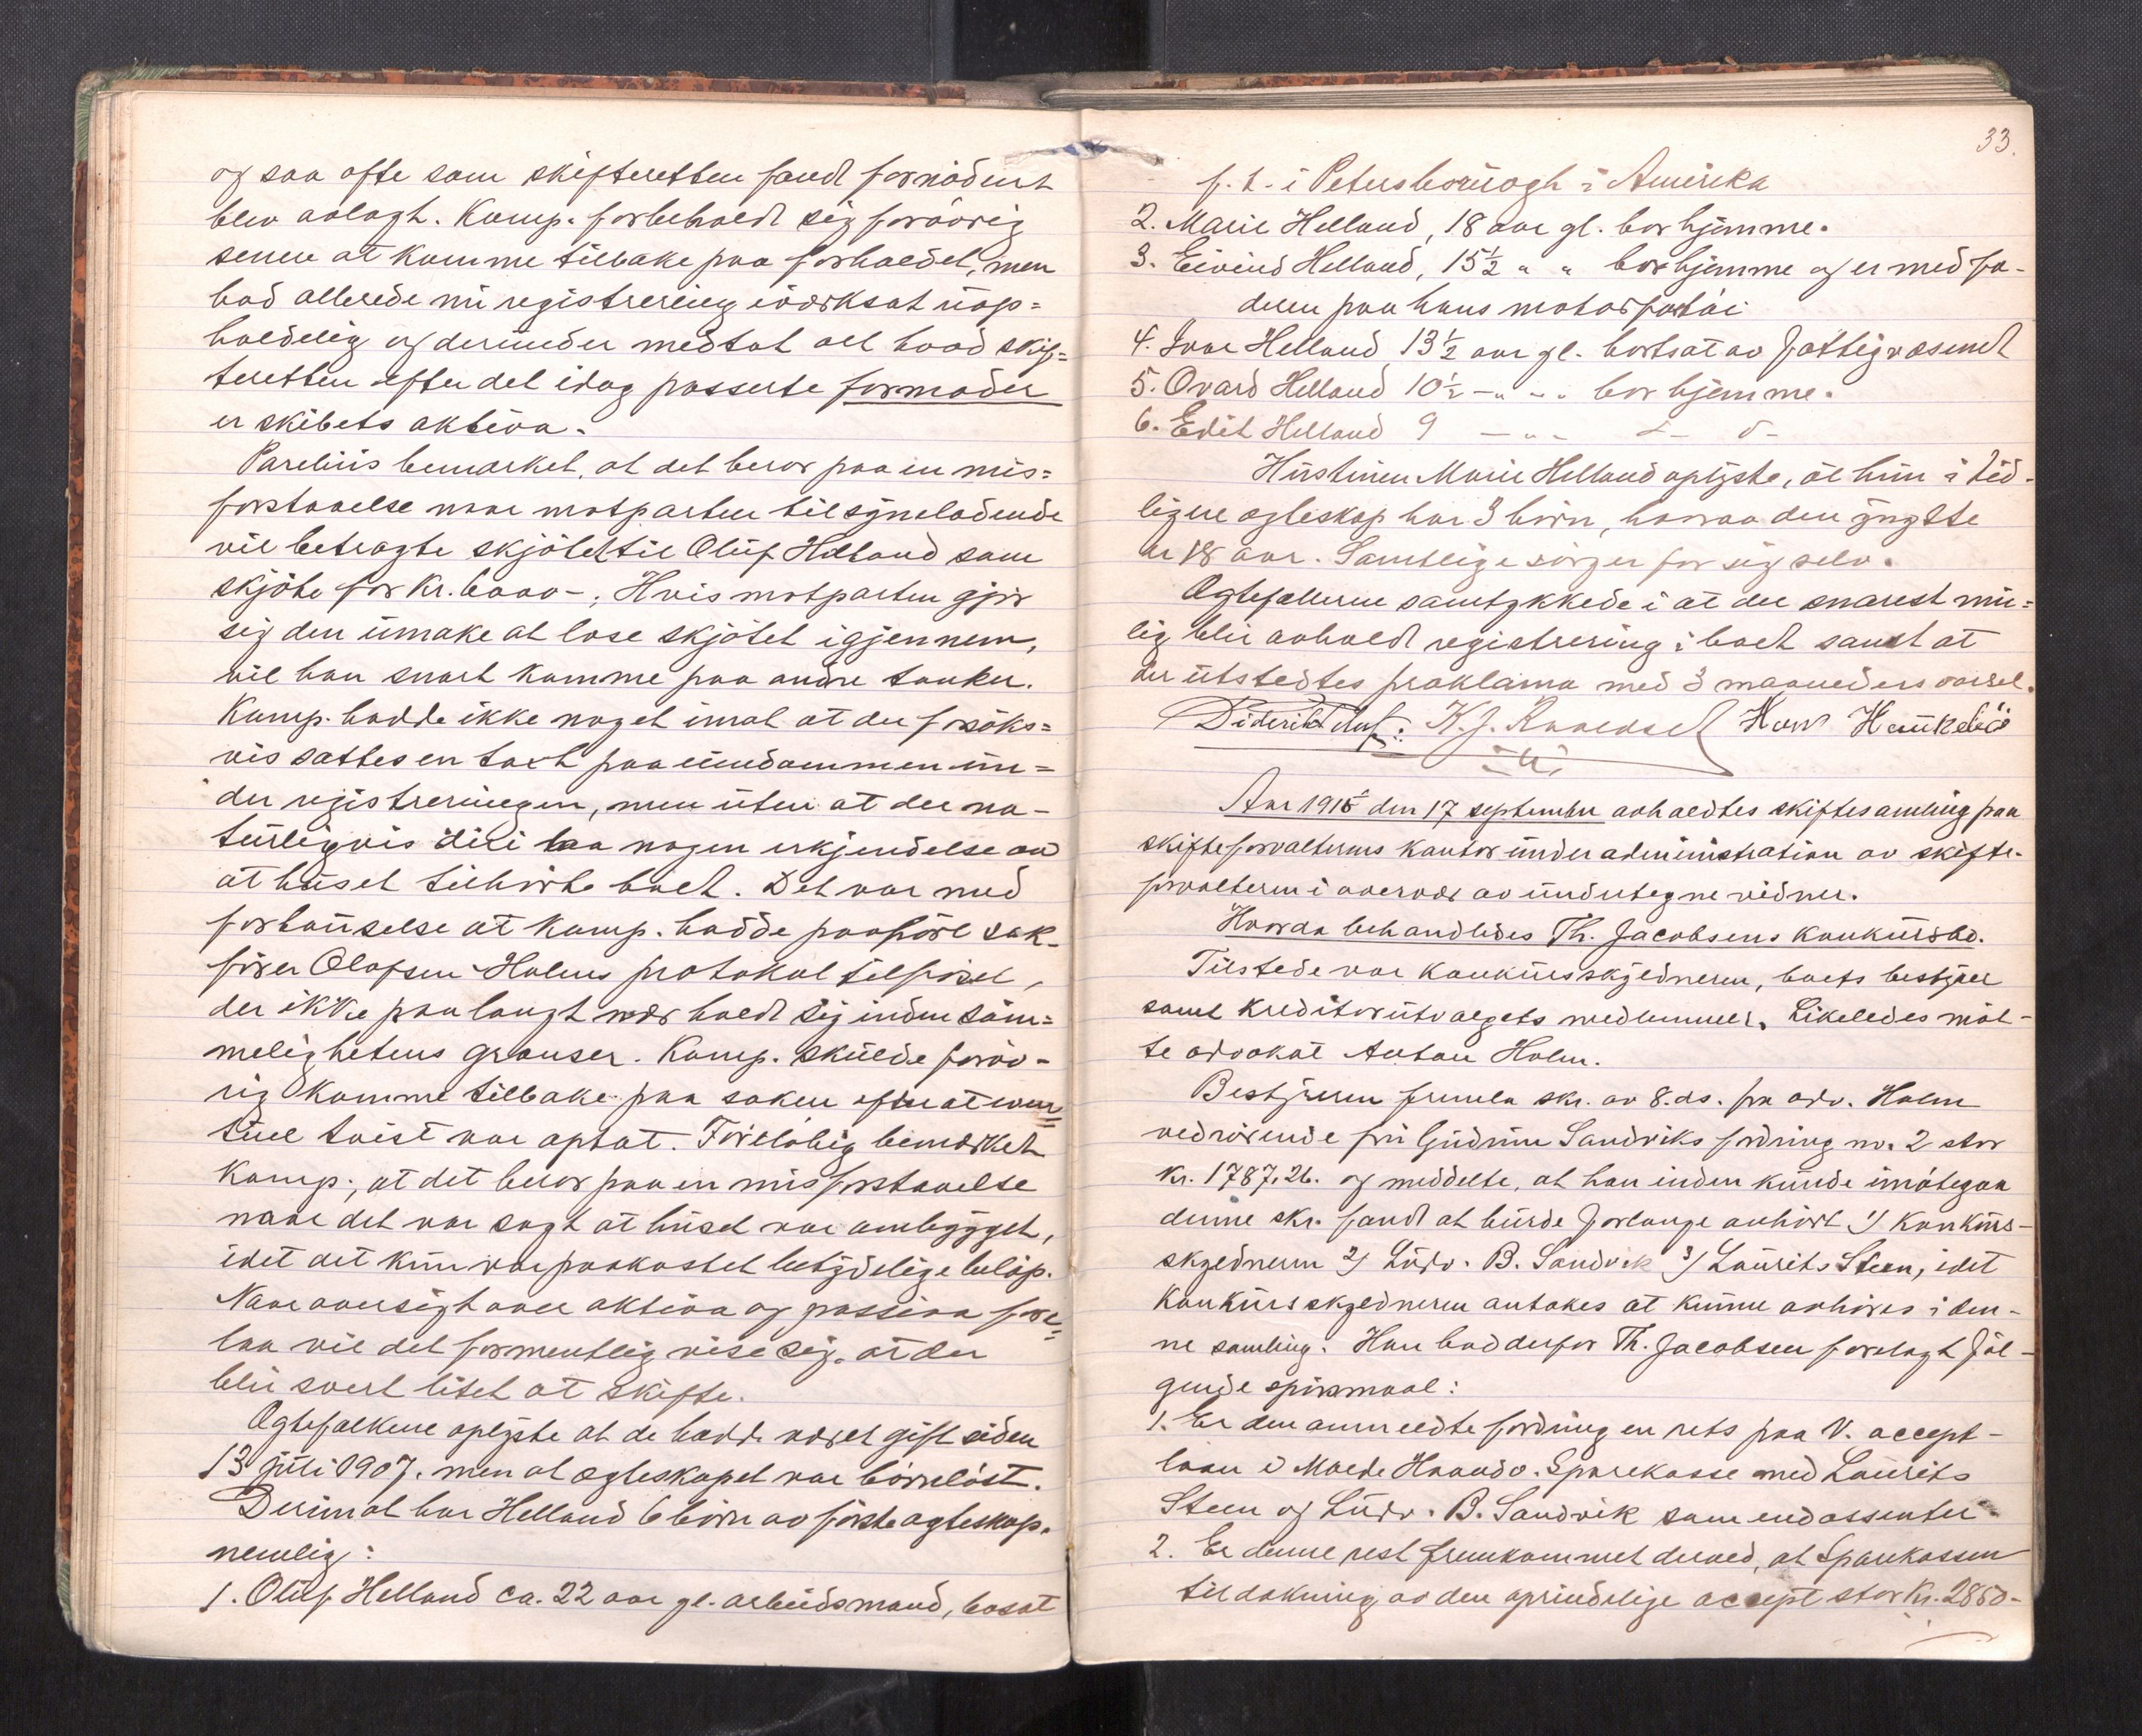 og saa ofte som skifteretten fandt fornödent
blev avlagt. Komp. forbeholdt sig forövrig
senere at komme tilbake paa forholdet, men
bad allerede nu registrering iverksat uop=
holdelig og derunder medtat alt hvad skif=
teretten efter det idag passerte formoder
er skibets aktiva.
Parelius bemerket, at det beror paa en mis=
forstaaelse naar motparten tilsyneladende
vil betragte skjötet til Oluf Helland som
skjöte for kr. 6000-. Hvis motparten gjör
sig den umake at læse skjötet igjennem,
vil han snart komme paa andre tanker.
Komp. hadde ikke noget imot at der forsöks=
vis sattes en takst paa eiendommen un=
der registreringen, men uten at der na-
turligvis deri laa nogen erkjendelse av
at huset tilhörte boet. Det var med
forbauselse at komp. hadde paahört sak-
förer Olafsen-Holms protokol tilförsel,
der ikke paa langt nær holdt sig inden söm=
melighetens grænser. Komp. skulde forøv-
rig komme tilbake paa saken efter at even
tuel tvist var optat. Foreløbig bemerket
Komp., at det beror paa en misforstaaelse
naar det var sagt at huset var ombygget,
idet det kun var paakostet ubetydelige belöp.
Naar oversigt over aktiva og passiva fore=
laa vil det formentlig vise sig, at der
blir svert litet at skifte.
Ægtefolkene oplyste at de hadde været gift siden
13 juli 1907, men at ægteskapet var barnlöst.
Derimot har Helland 6 börn av förste ægteskap,
nemlig:
1. Oluf Helland ca. 22 aar gl. arbeidsmand, bosat
33.
p. t. i Petersborough i Amerika
2. Marie Helland, 18 aar gl. bor hjemme.
3. Eivind Helland, 15½ " " bor hjemme og er med fa-
deren paa hans motorfartöi
4. Ivar Helland 13½ aar gl. bortsat av fattigvæsenet
5. Ovard Helland 10½ - " - " bor hjemme.
6. Edit Helland 9 - " - d- o-
Hustruen Marie Helland oplyste, at hun i tid-
ligere ægteskap har 3 börn, hvorav den yngste
er 18 aar. Samtlige sörger for sig selv.
Ægtefællerne samtykkede i at der snarest mu=
lig blir avholdt registrering i boet samt at
der utstedtes proklama med 3 maaneders varsel.
Diderik K. J. Haukelid
Aar 1915 den 17 september avholdtes skiftesamling paa
skifteforvalterens kontor under administration av skifte-
forvalteren i overvær av undertegnede vidner.
Hvorda behandledes Th. Jacobsens konkursbo.
Tilstede var konkursskyldneren, boets bestyrer
samt kreditorutvalgets medlemmer. Likeledes möt-
te advokat Anton Holm.
Bestyreren fremla skr. av 8. ds. fra adv. Holm
vedrörende fru Gudrun Sandviks fordring nr. 2 stor
kr. 1787.26. og meddelte, at han inden kunde imötegaa
denne skr. fandt at burde forlange avhört 1) konkurs-
skyldneren 2) Ludv. B. Sandvik 3) Laurits Steen, idet
konkursskyldneren antokes at kunne avhöres i den-
ne samling. Han bad derfor Th. Jacobsen forelagt föl-
gende spörsmaal:
1. Er den anmeldte fordring en rets paa V. accept-
laan i Melde Haandv. Sparekasse med Laurits
Steen og Ludv. B. Sandvik som endossenter.
2. Er denne rest fremkommet derved, at Sparekassen
til dækning av den oprindelige accept stor kr. 2850-